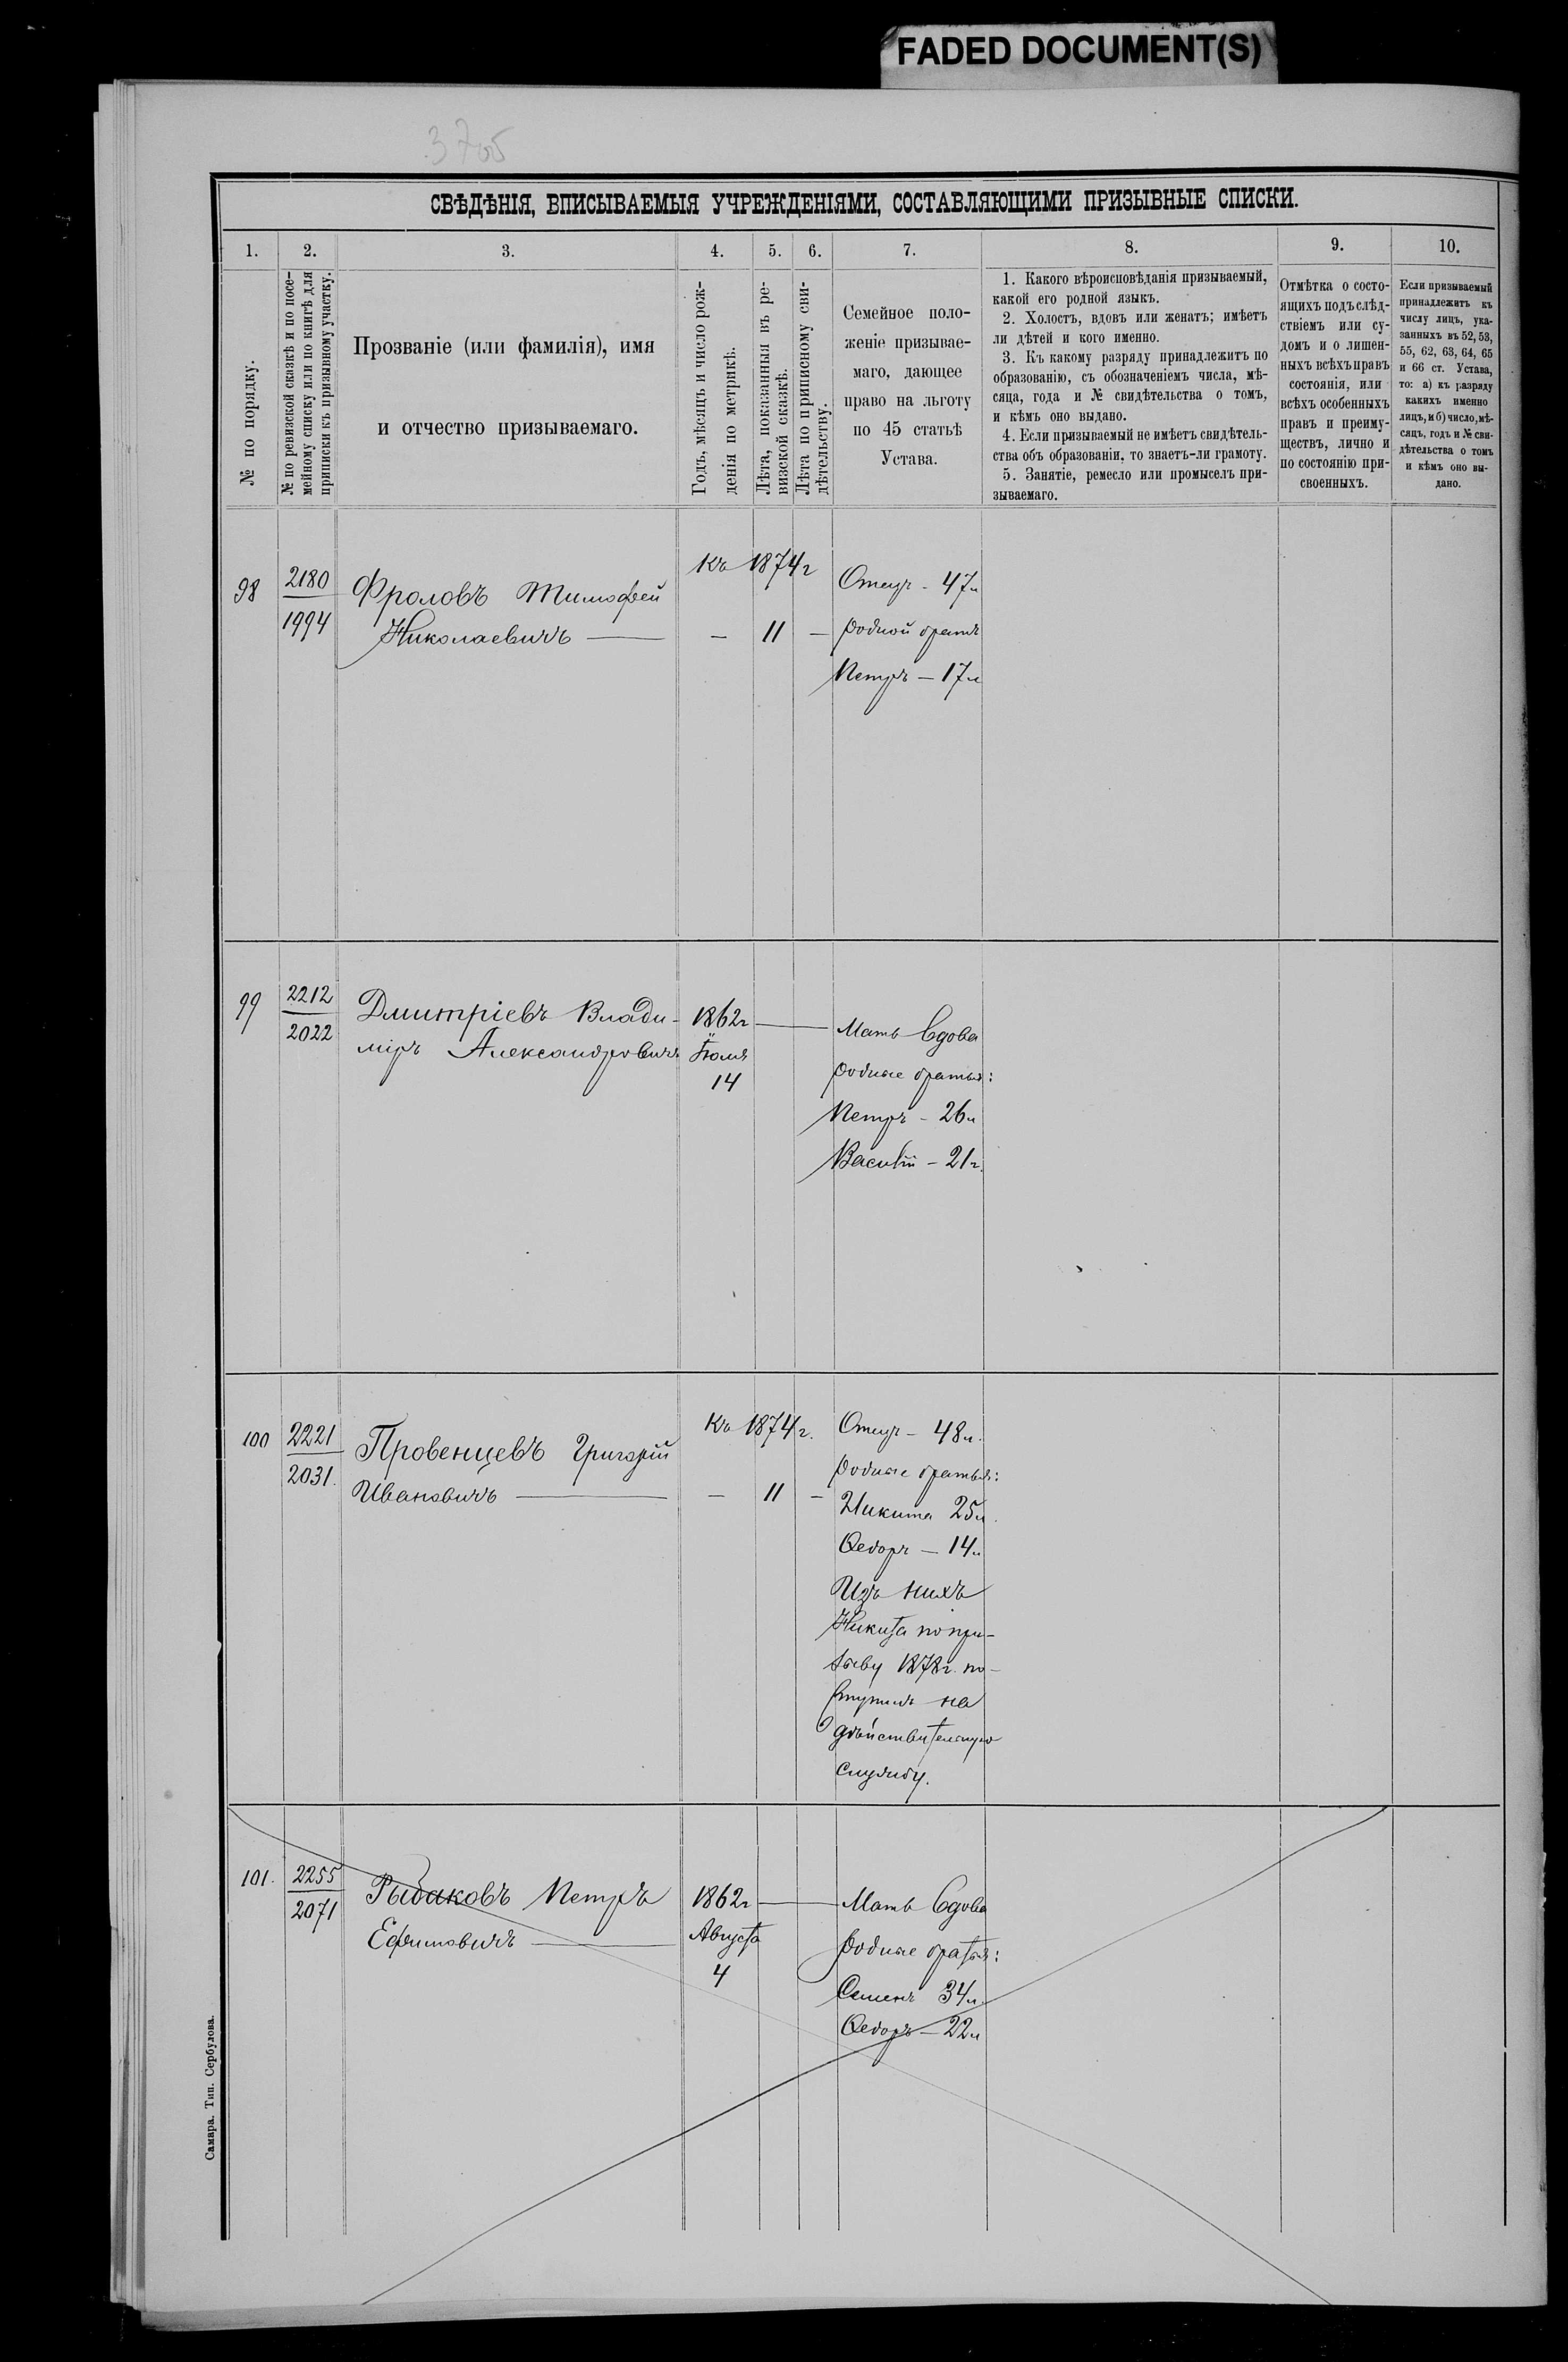 FADED DOCUMENT(S)
3705
СВѢДѢНІЯ, ВПИСЫВАЕМЫЯ УЧРЕЖДЕНІЯМИ, СОСТАВЛЯЮЩИМИ ПРИЗЫВНЫЕ СПИСКИ.
1.
№ по порядку.
2.
№ по ревизской сказкѣ и по посе-
мейному списку или по книгѣ для
приписки къ призывному участку.
3.
Прозваніе (или фамилія), имя
и отчество призываемаго.
4.
Годъ, мѣсяцъ и число рож-
денія по метрикѣ.
5.
Лѣта, показанныя въ ре-
визской сказкѣ.
6.
Лѣта по приписному сви-
дѣтельству.
7.
Семейное поло-
женіе призывае-
маго, дающее
право на льготу
по 45 статьѣ
Устава.
8.
1. Какого вѣроисповѣданія призываемый,
какой его родной языкъ.
2. Холостъ, вдовъ или женатъ; имѣетъ
ли дѣтей и кого именно.
3. Къ какому разряду принадлежитъ по
образованію, съ обозначеніемъ числа, мѣ-
сяца, года и № свидѣтельства о томъ,
и кѣмъ оно выдано.
4. Если призываемый не имѣетъ свидѣтель-
ства объ образованіи, то знаетъ-ли грамоту.
5. Занятіе, ремесло или промыселъ при-
зываемаго.
9.
Отмѣтка о состо-
ящихъ подъ слѣд-
ствіемъ или су-
домъ и о лишен-
ныхъ всѣхъ правъ
состоянія, или
всѣхъ особенныхъ
правъ и преиму-
ществъ, лично и
по состоянію при-
своенныхъ.
10.
Если призываемый
принадлежитъ къ
числу лицъ, ука-
занныхъ въ 52, 53,
55, 62, 63, 64, 65
и 66 ст. Устава,
то: а) къ разряду
какихъ именно
лицъ, и б) число, мѣ-
сяцъ, годъ и № сви-
дѣтельства о томъ
и кѣмъ оно вы-
дано.
98
2180
1994
Фроловъ Тимофей
Николаевичъ —
Къ 1874 г
— 11 —
Отецъ - 47 л
родной братъ
Петръ — 17 л
99
2212
2022
Дмитріевъ Влади-
міръ Александровичъ
1862 г —
Іюля
14
Мать вдова
родные братья:
Петръ - 26 л
Василій - 21 г.
100
2221
2031.
Провенцевъ Григорій
Ивановичъ —
Къ 1874 г.
— 11 —
Отецъ - 48 л.
родные братья:
Никита 25 л.
Ѳедоръ — 14 л
Изъ нихъ
Никита по при-
зыву 1878 г. по-
ступилъ на
дѣйствительную
службу.
101.
2255
2071
Рыбаковъ Петръ
Ефимовичъ —
1862 г —
Августа
4
Мать вдова
родные братья:
Семенъ 34 л.
Ѳедоръ — 22 л
Самара. Тип. Сербулова.